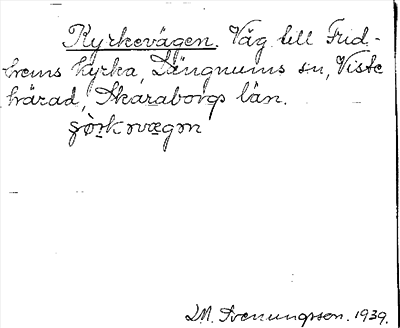 Kyrkevägen. Väg till Frid-
hems kyrka, Längnums sn, Viste
härad, Skaraborgs län.
L.M. Svenungsson. 1939.